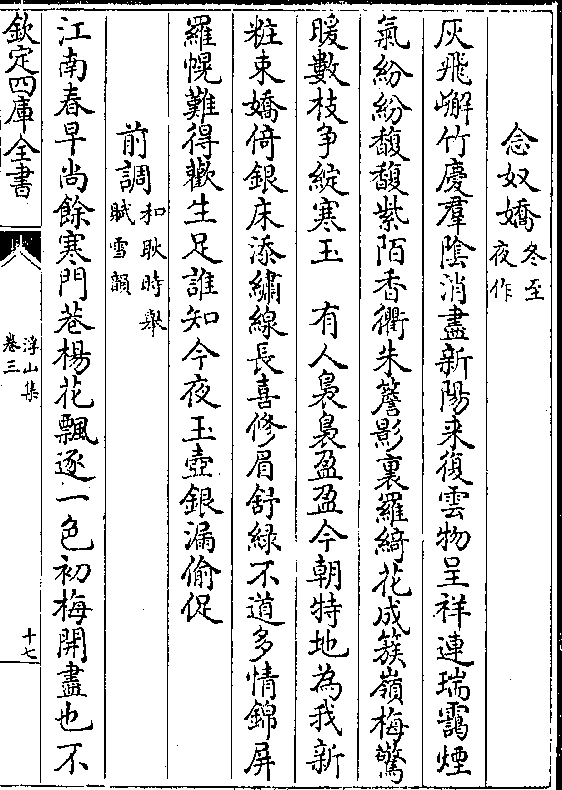 念奴嬌冬至夜作
灰飛嶰竹慶羣陰消盡新陽来復雲物呈祥連瑞靄煙
氣紛紛馥馥紫陌香衢朱簷影裏羅綺花成簇嶺梅驚
暖數枝争綻寒玉　有人裊裊盈盈今朝特地為我新
粧束嬌倚銀床添繡線長喜修眉舒緑不道多情錦屏
羅幌難得歡生足誰知今夜玉壺銀漏偷促
前調和耿時舉賦雪韻
江南春早尚餘寒門巷楊花飄逐一色初梅開盡也不
欽定四庫全書
浮山集
卷三
十七